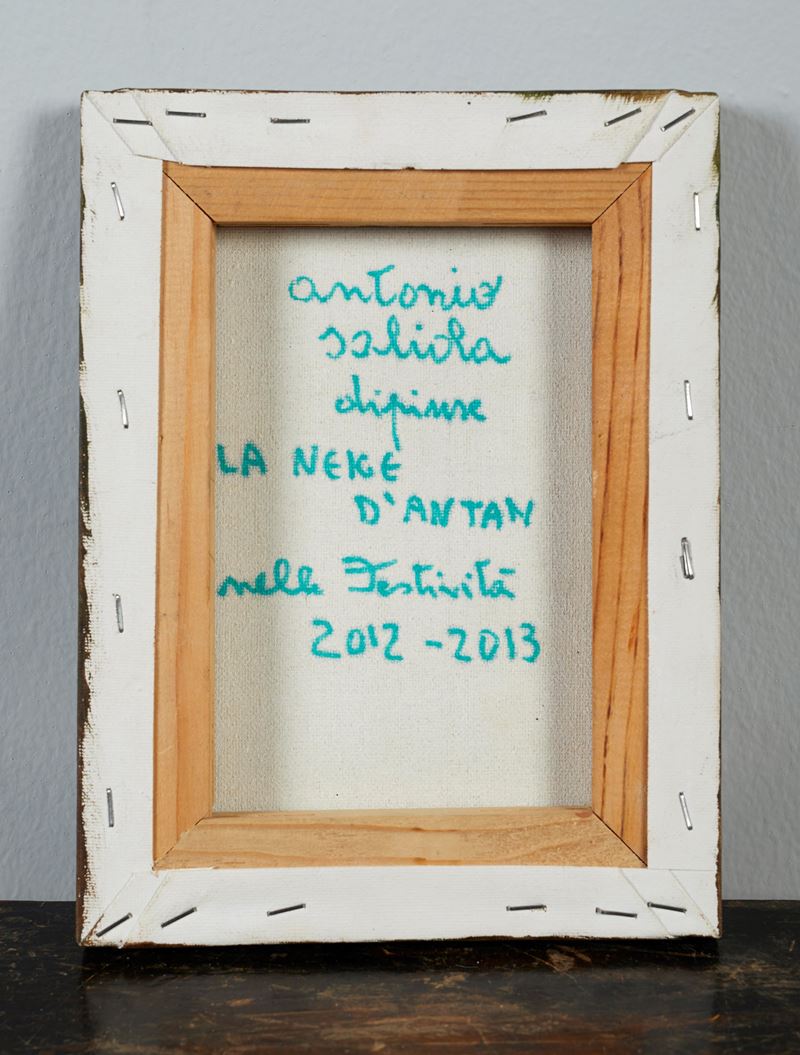 antonio
saliola
dipinse
LA NEIGE
D'ANTAN
nelle Festività
2012 - 2013